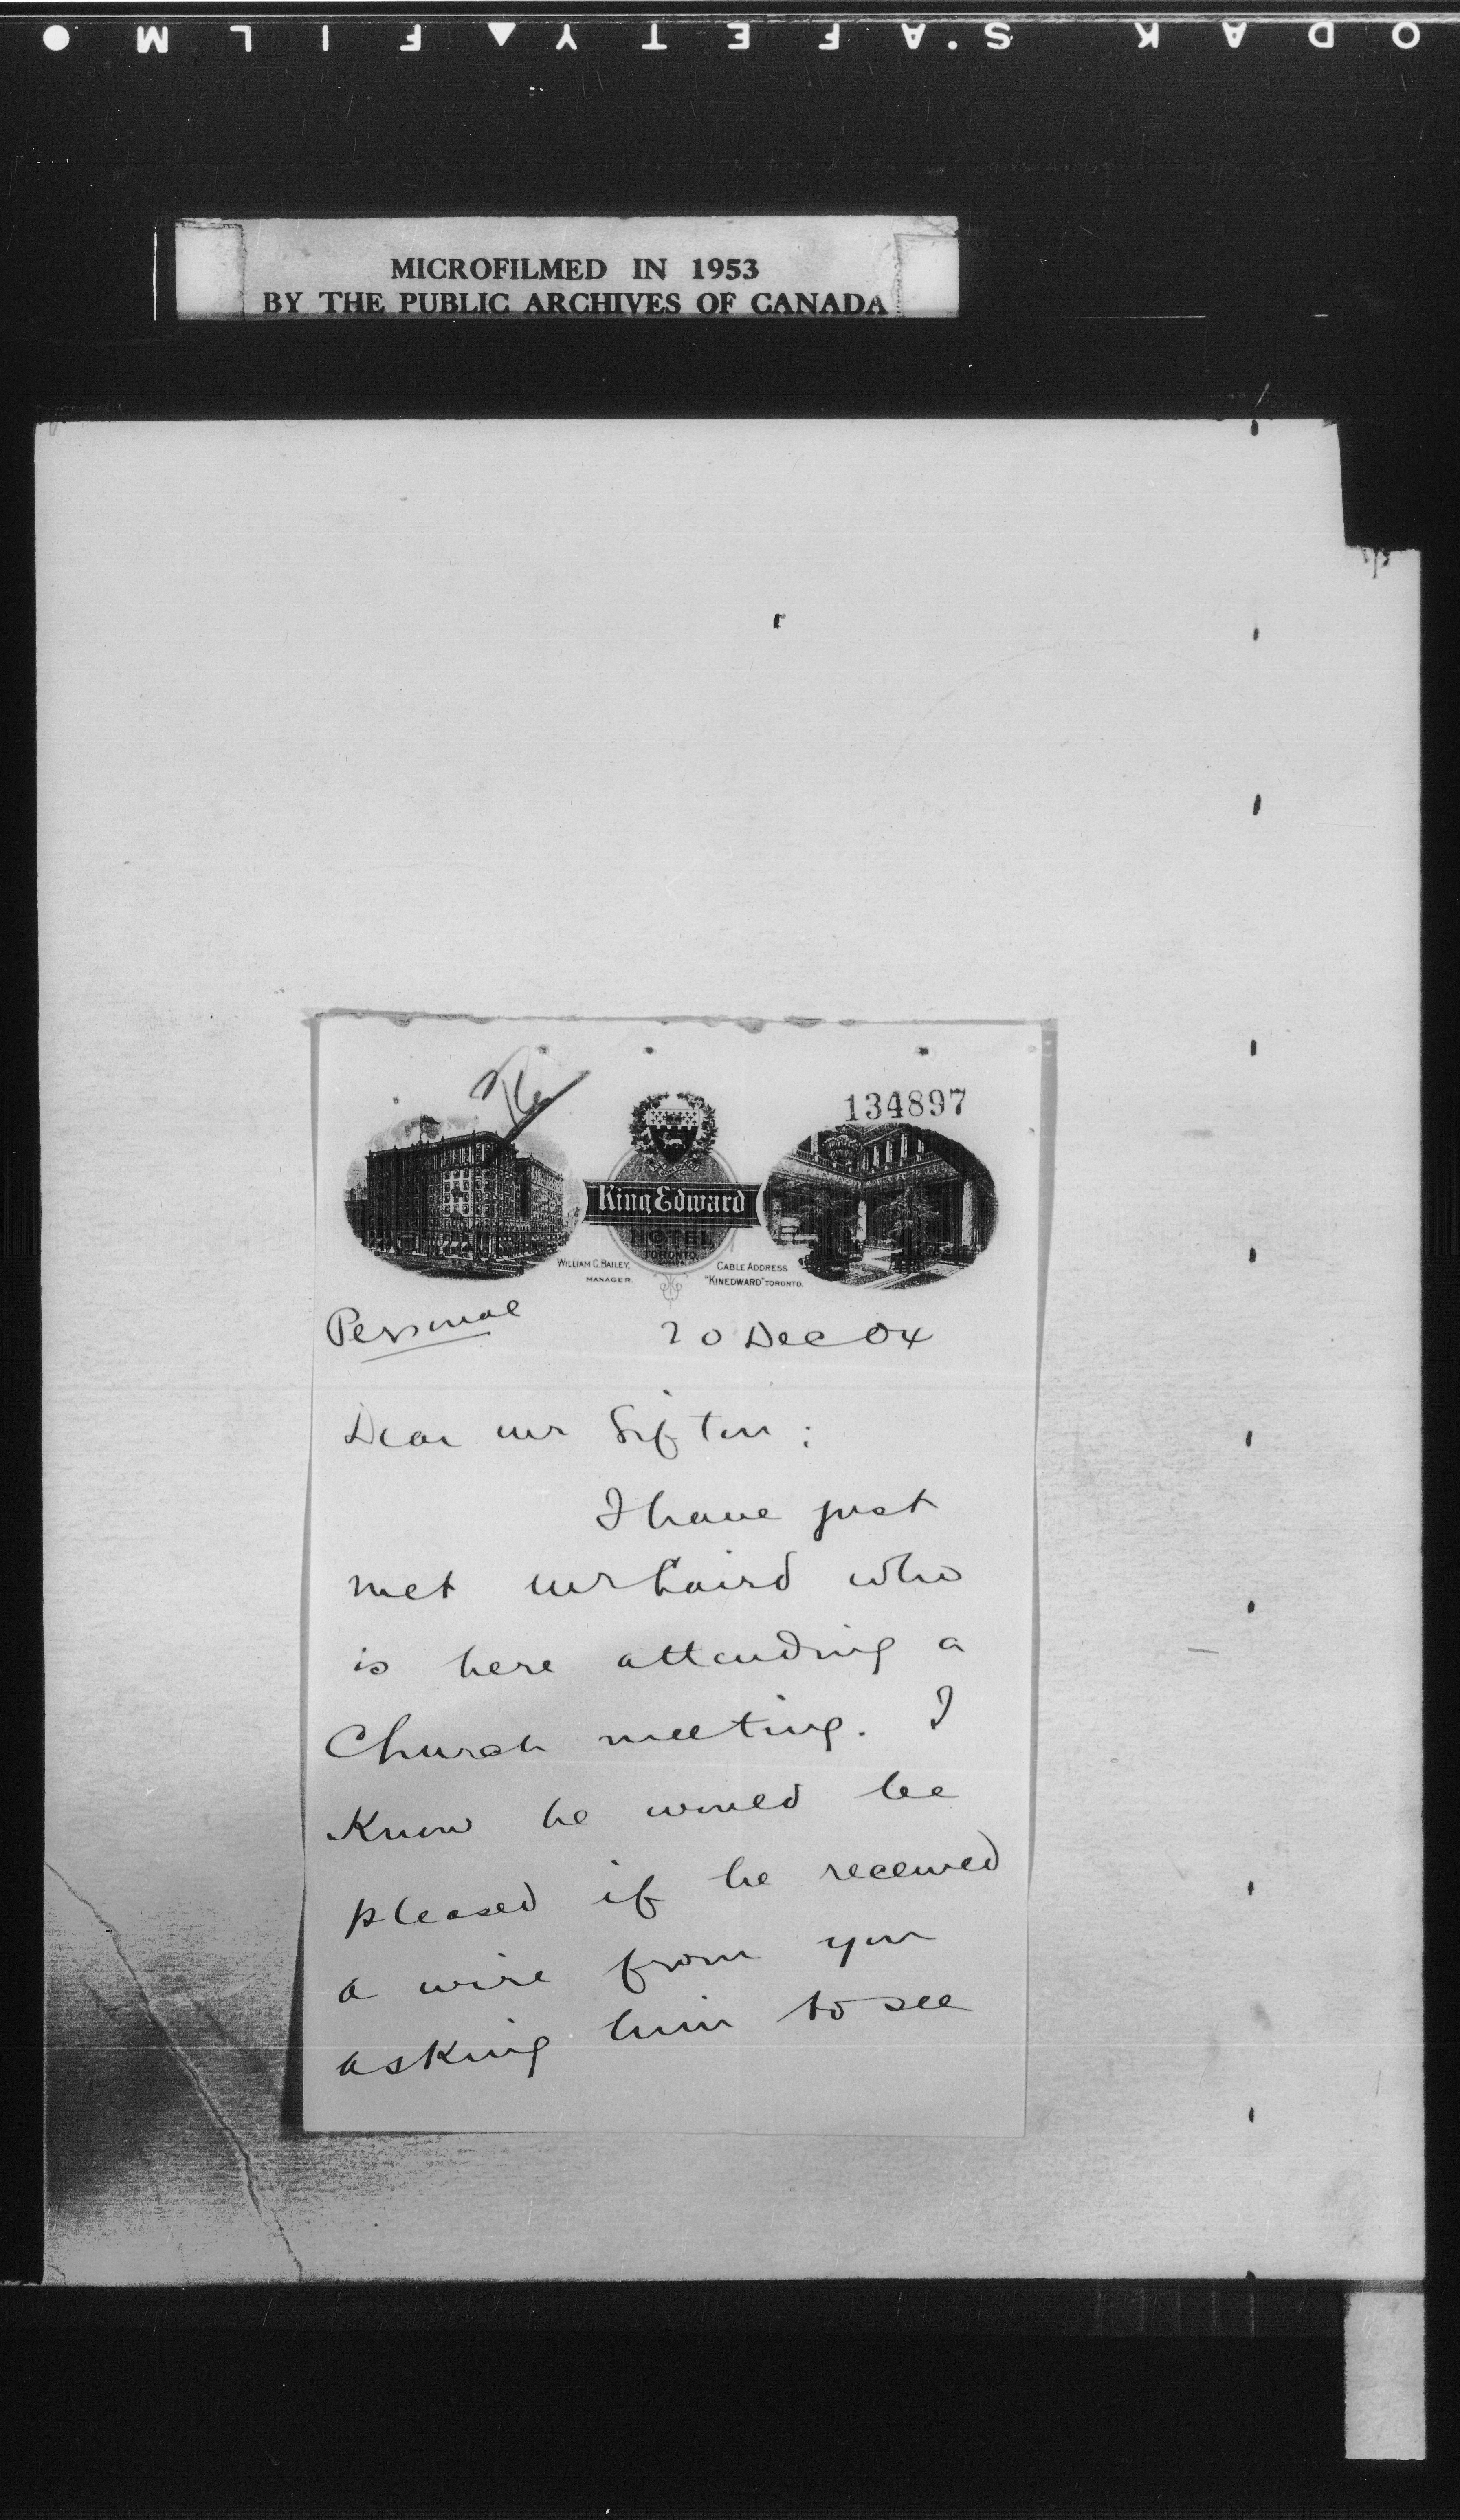 KODAK S'AFETY▲FILM
MICROFILMED IN 1953
BY THE PUBLIC ARCHIVES OF CANADA
134897
King Edward
HOTEL
TORONTO,
CANADA.
WILLIAM C. BAILEY,
MANAGER.
CABLE ADDRESS
"KINEDWARD" TORONTO.
Personal
20 Dec 04
Dear Mr Sifton;
I have just
met Mr Laird who
is here attending a
Church meeting. I
Know he would be
pleased if he received
a wire from you
asking him to see